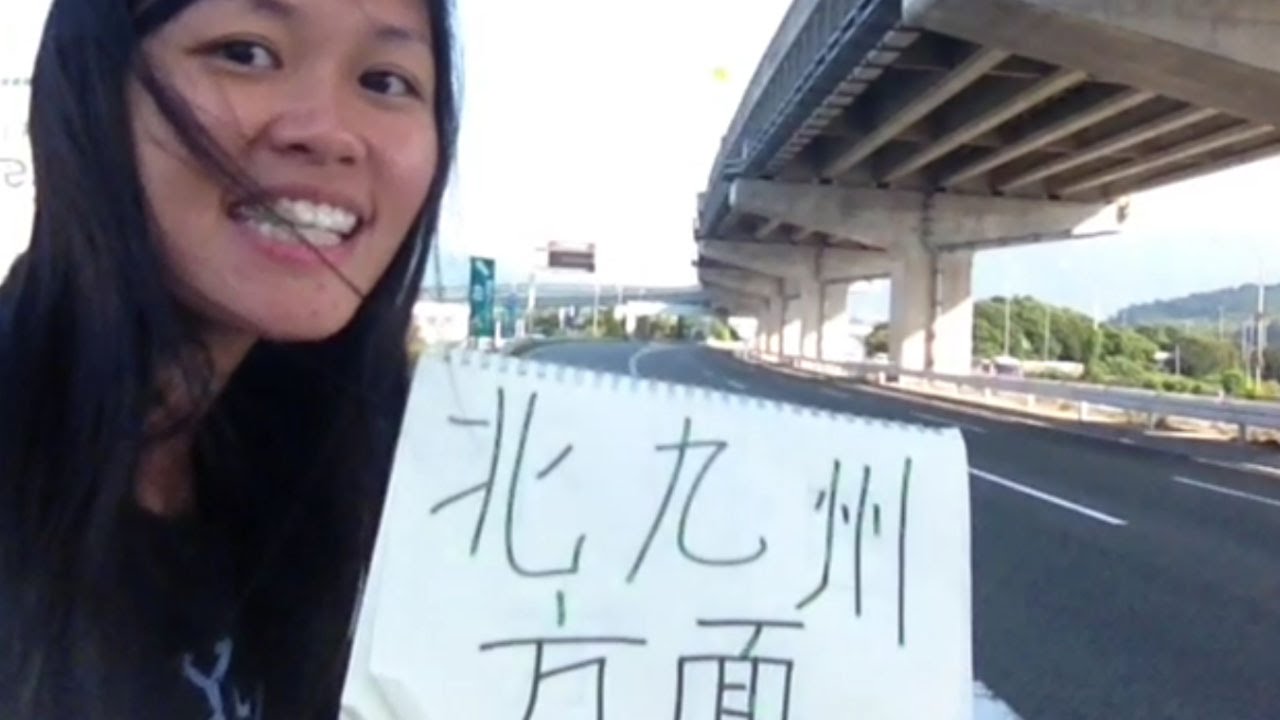 北九州
方面